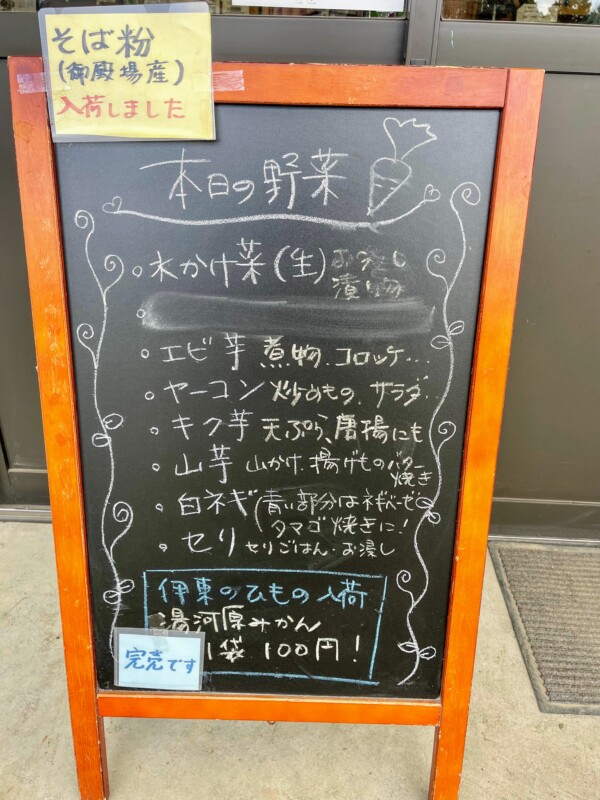 そば粉
(御殿場産)
入荷しました
本日の野菜
水かけ菜(生)お浸し
漬物
エビ芋 煮物、コロッケ…
ヤーコン 炒めもの、サラダ…
キク芋 天ぷら、唐揚にも
山芋 山かけ、揚げものバター
焼き
白ネギ(青い部分はネギベーゼ
タマゴ焼きに!
セリ セリごはん・お浸し
伊東のひもの入荷
湯河原みかん
1袋 100円!
完売です